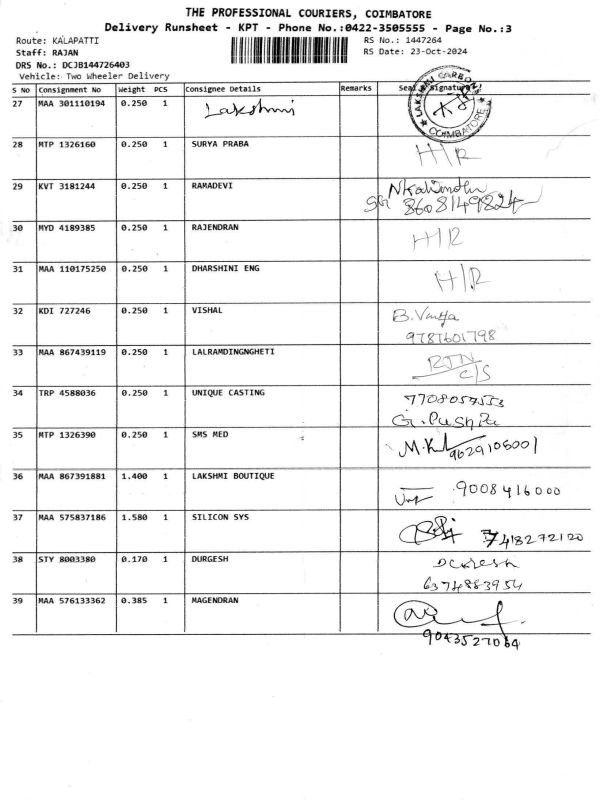 THE PROFESSIONAL COURIERS, COIMBATORE
Delivery Runsheet - KPT - Phone No.:0422-3505555 - Page No.:3
Route: KALAPATTI RS No.: 1447264
Staff: RAJAN RS Date: 23-Oct-2024
DRS No.: DCJB144726403
Vehicle: Two Wheeler Delivery
S No Consignment No Weight PCS Consignee Details Remarks Seal Signature
27 MAA 301110194 0.250 1 Lakshmi LAKSHMI CARBONS COIMBATORE
28 MTP 1326160 0.250 1 SURYA PRABA H/R
29 KVT 3181244 0.250 1 RAMADEVI
8608149824
30 MYD 4189385 0.250 1 RAJENDRAN H/R
31 MAA 110175250 0.250 1 DHARSHINI ENG H/R
32 KDI 727246 0.250 1 VISHAL B.
9787601798
33 MAA 867439119 0.250 1 LALRAMDINGNGHETI RTN
C/S
34 TRP 4588036 0.250 1 UNIQUE CASTING 7708057553
G. Pushpa
35 MTP 1326390 0.250 1 SMS MED 9629105001
36 MAA 867391881 1.400 1 LAKSHMI BOUTIQUE 9008416000
37 MAA 575837186 1.580 1 SILICON SYS 7418272120
38 STY 8003380 0.170 1 DURGESH
6374883954
39 MAA 576133362 0.385 1 MAGENDRAN
9043527064